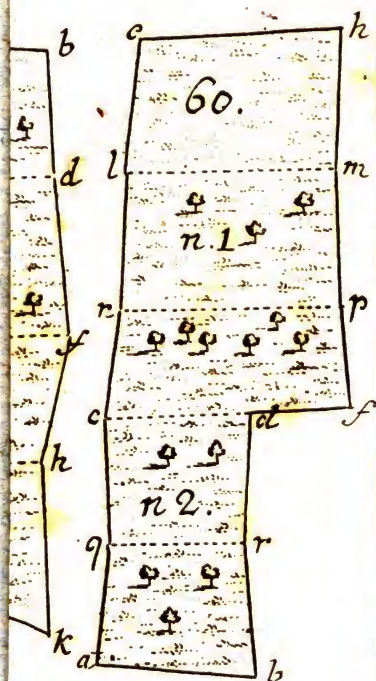 b
d
f
h
k
e h
60.
l m
n.1
n p
c d f
n 2.
q r
a b